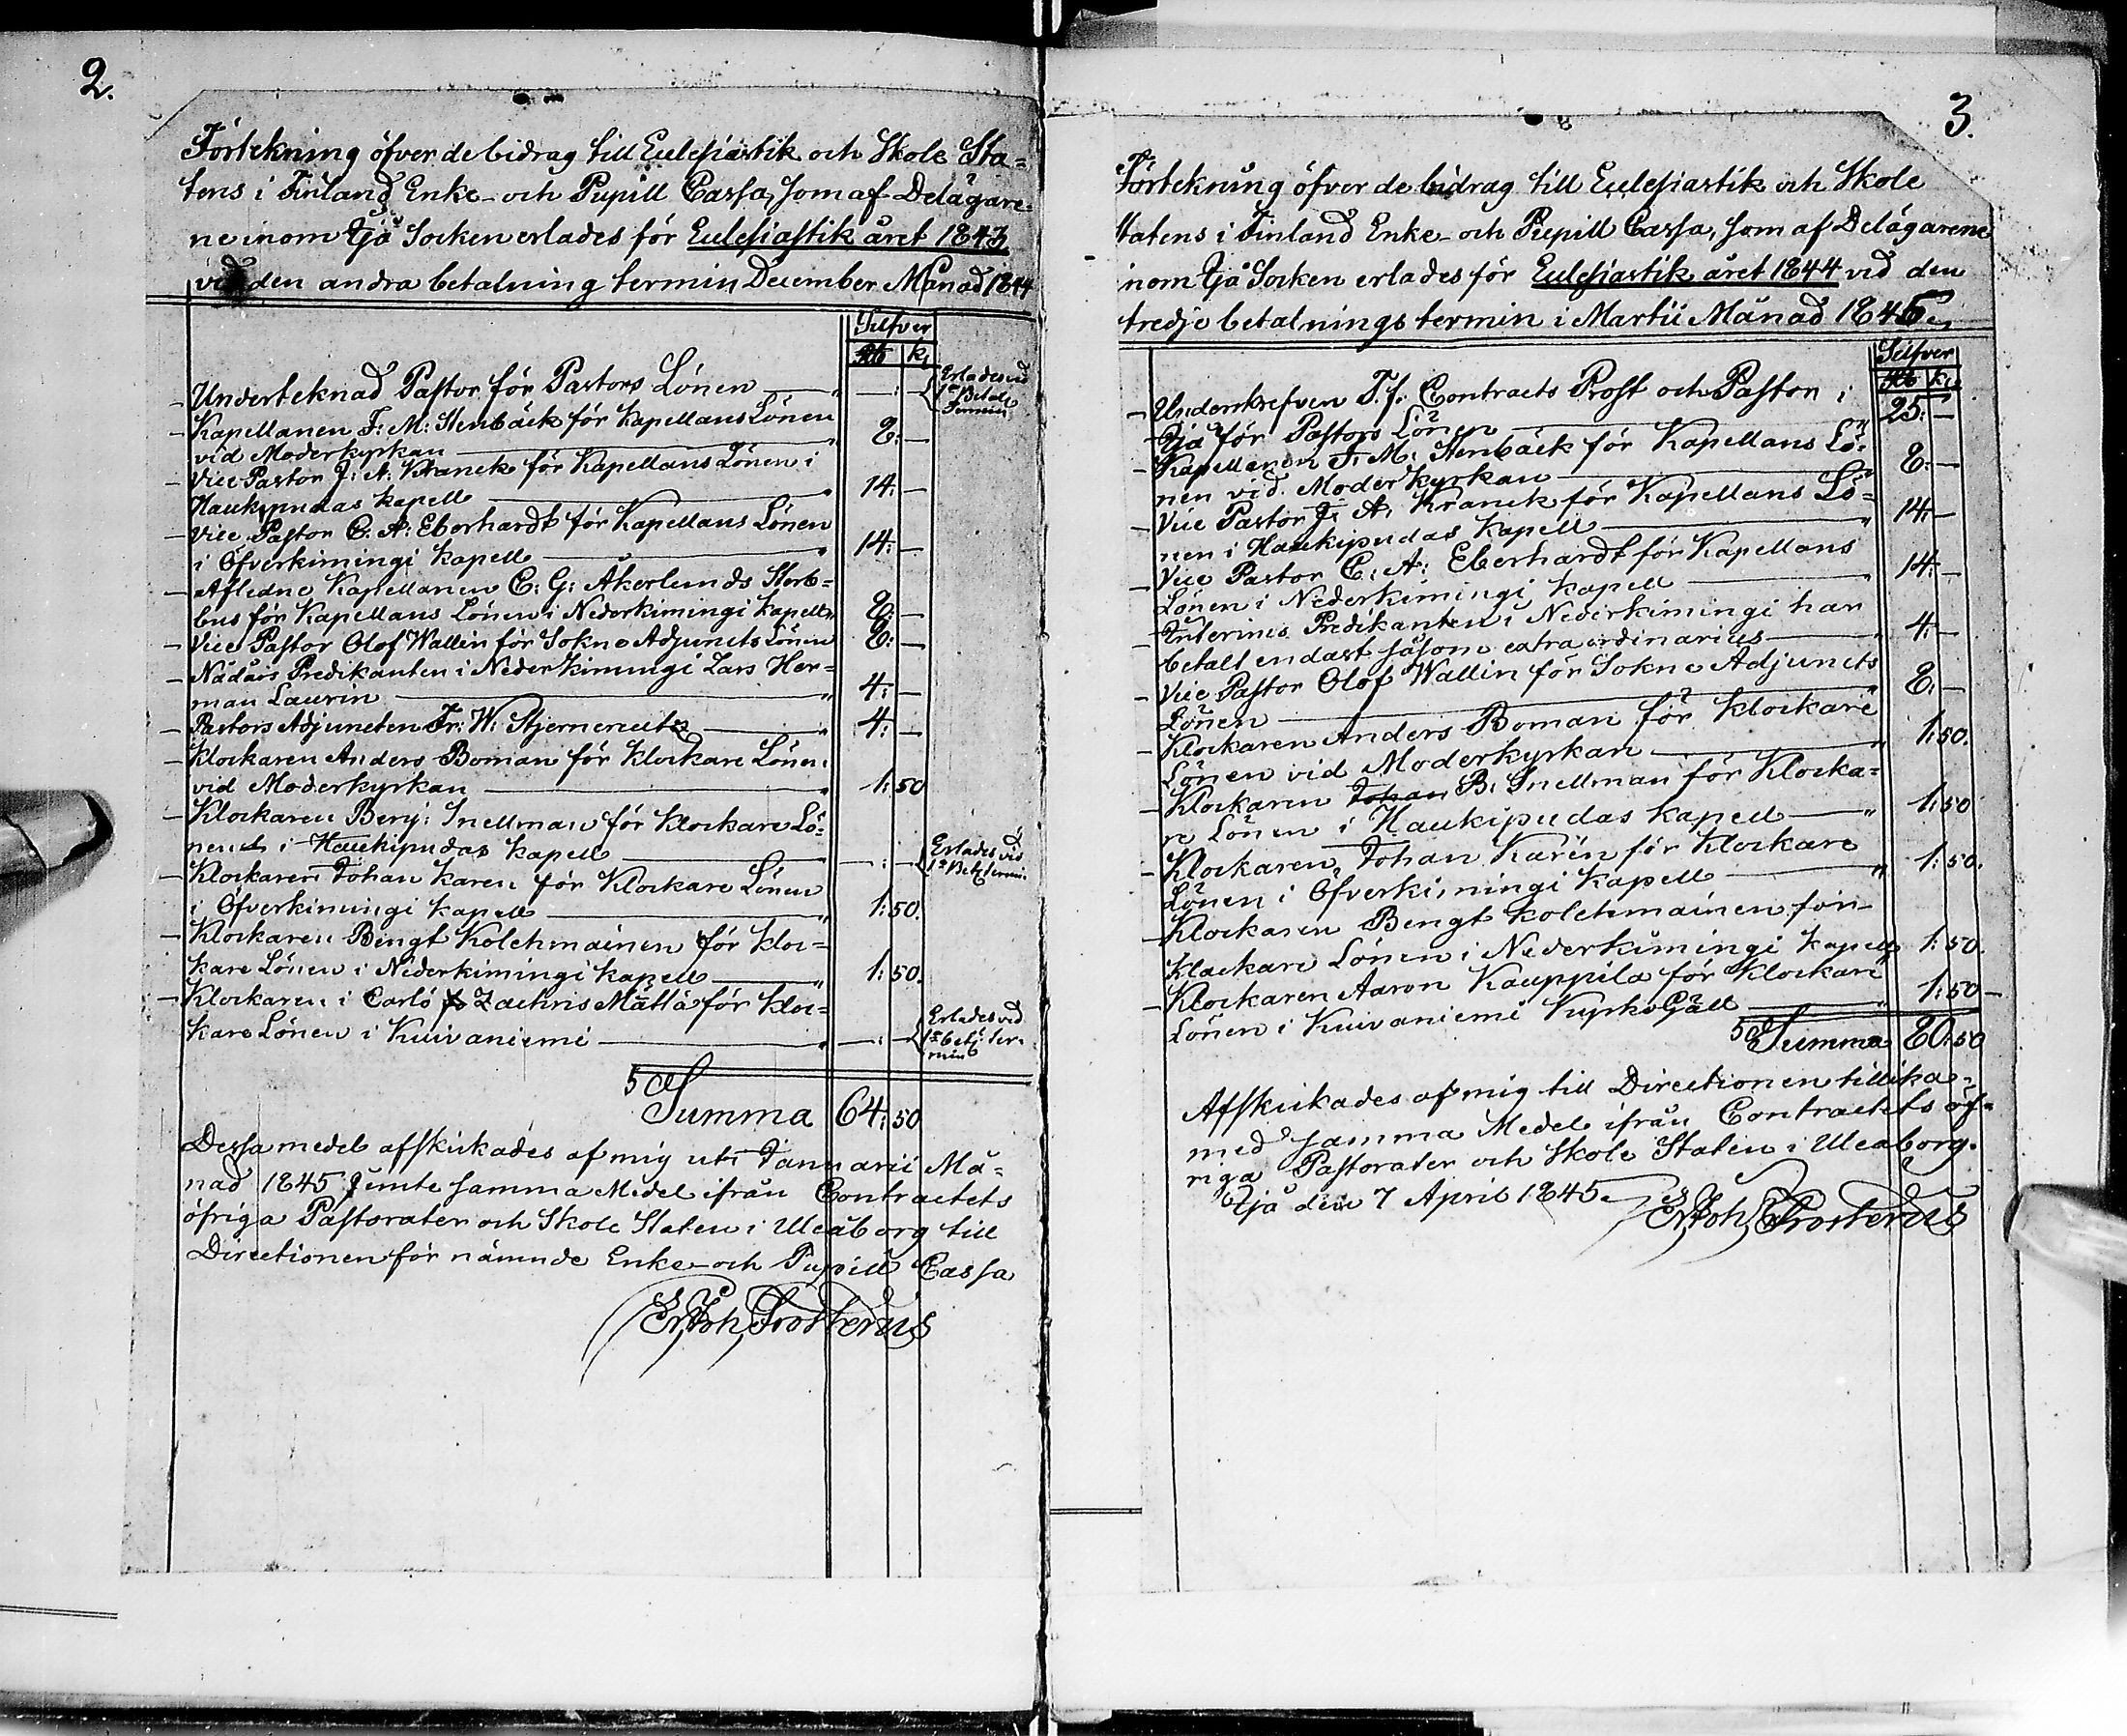 2.
Förtekning öfver de bidrag till Ecclesiastik och Skole Sta=
tens i Finland Enke- och Pupill Cassa, som af Delägare-
ne inom Ijå Socken erlades för Ecclesiastik året 1843
vid den andra betalning termin December Månad 1844
Silfver
Rb k
Underteknad Pastor för Pastors Lönen — " —:— Erlades vid
1sta Betaln
Termin
Kapellanen F: M: Stenbäck för Kapellans Lönen
vid Moderkyrkan — " 8:—
Vice Pastor J: A: Kranck för Kapellans Lönen i
Haukipudas kapell — " 14:—
Vice Pastor C: A: Eberhardt för Kapellans Lönen
i Öfverkimingi kapell — " 14:—
Afledne Kapellanen C: G: Åkerlunds Sterb=
hus för Kapellans Lönen i Nederkimingi kapell " 8:—
Vice Pastor Olof Wallin för Sokne Adjuncts Lönen 8:—
Nådårs Predikanten i Nederkimingi Lars Her=
man Laurin — " 4:—
Pastors Adjuncten Fr: W: Stjerncreutz — " 4:—
Klockaren Anders Boman för Klockare Lönen
vid Moderkyrkan — " 1:50
Klockaren Benj: Snellman för Klockare Lö=
nen i Haukipudas kapell — " —:— Erlades vid
1sta Betg termin
Klockaren Johan Karen för Klockare Lönen
i Öfverkimingi kapell — " 1:50.
Klockaren Bengt Kolehmainen för Kloc=
kare Lönen i Nederkimingi kapell — " 1:50.
Klockaren i Carlö Zachris Mättä för Kloc=
kare Lönen i Kuivaniemi — " —:— Erlades vid
1sta betg: ter=
min
Summa 64:50
Dessa medel afskickades af mig uti Januarii Må=
nad 1845 jemte samma Medel ifrån Contractets
öfriga Pastorater och Skole Staten i Uleåborg till
Directionen för nämnde Enke- och Pupill Cassa
Er, Joh, Frosterus
3.
Förtekning öfver de bidrag till Ecclesiastik och Skole
Statens i Finland Enke- och Pupill Cassa, som af Delägarene
inom Ijå Socken erlades för Ecclesiastik året 1844 vid den
tredje betalnings termin i Martii Månad 1845.
Silfver
Rb k
Underskrefven T. f. Contracts Prost och Pastor i
Ijå för Pastors Lönen — " 25:—
Kapellanen F: M: Stenbäck för Kapellans Lö=
nen vid Moderkyrkan — " 8:—
Vice Pastor J: A: Kranck för Kapellans Lö=
nen i Haukipudas Kapell — " 14:—
Vice Pastor C: A: Eberhardt för Kapellans
Lönen i Nederkimingi kapell — " 14:—
Interims Predikanten i Nederkimingi har
betalt endast såsom extra ordinarius — " 4:—
Vice Pastor Olof Wallin för Sokne Adjuncts
Lönen — " 8:—
Klockaren Anders Boman för Klockare
Lönen vid Moderkyrkan — " 1:50.
Klockaren Johan B: Snellman för Klocka=
re Lönen i Haukipudas kapell — " 1:50
Klockaren Johan Karén för Klockare
Lönen i Öfverkimingi Kapell — " 1:50.
Klockaren Bengt Kolehmainen för
Klockare Lönen i Nederkimingi kapell 1:50.
Klockaren Aaron Kauppila för Klockare
Lönen i Kuivaniemi Kyrko Gäll — " 1:50
Summa 80:50
Afskickades af mig till Directionen tillika
med samma Medel ifrån Contractets öf=
riga Pastorater och Skole Staten i Uleåborg.
Ijå den 7 April 1845.
Er, Joh, Frosterus